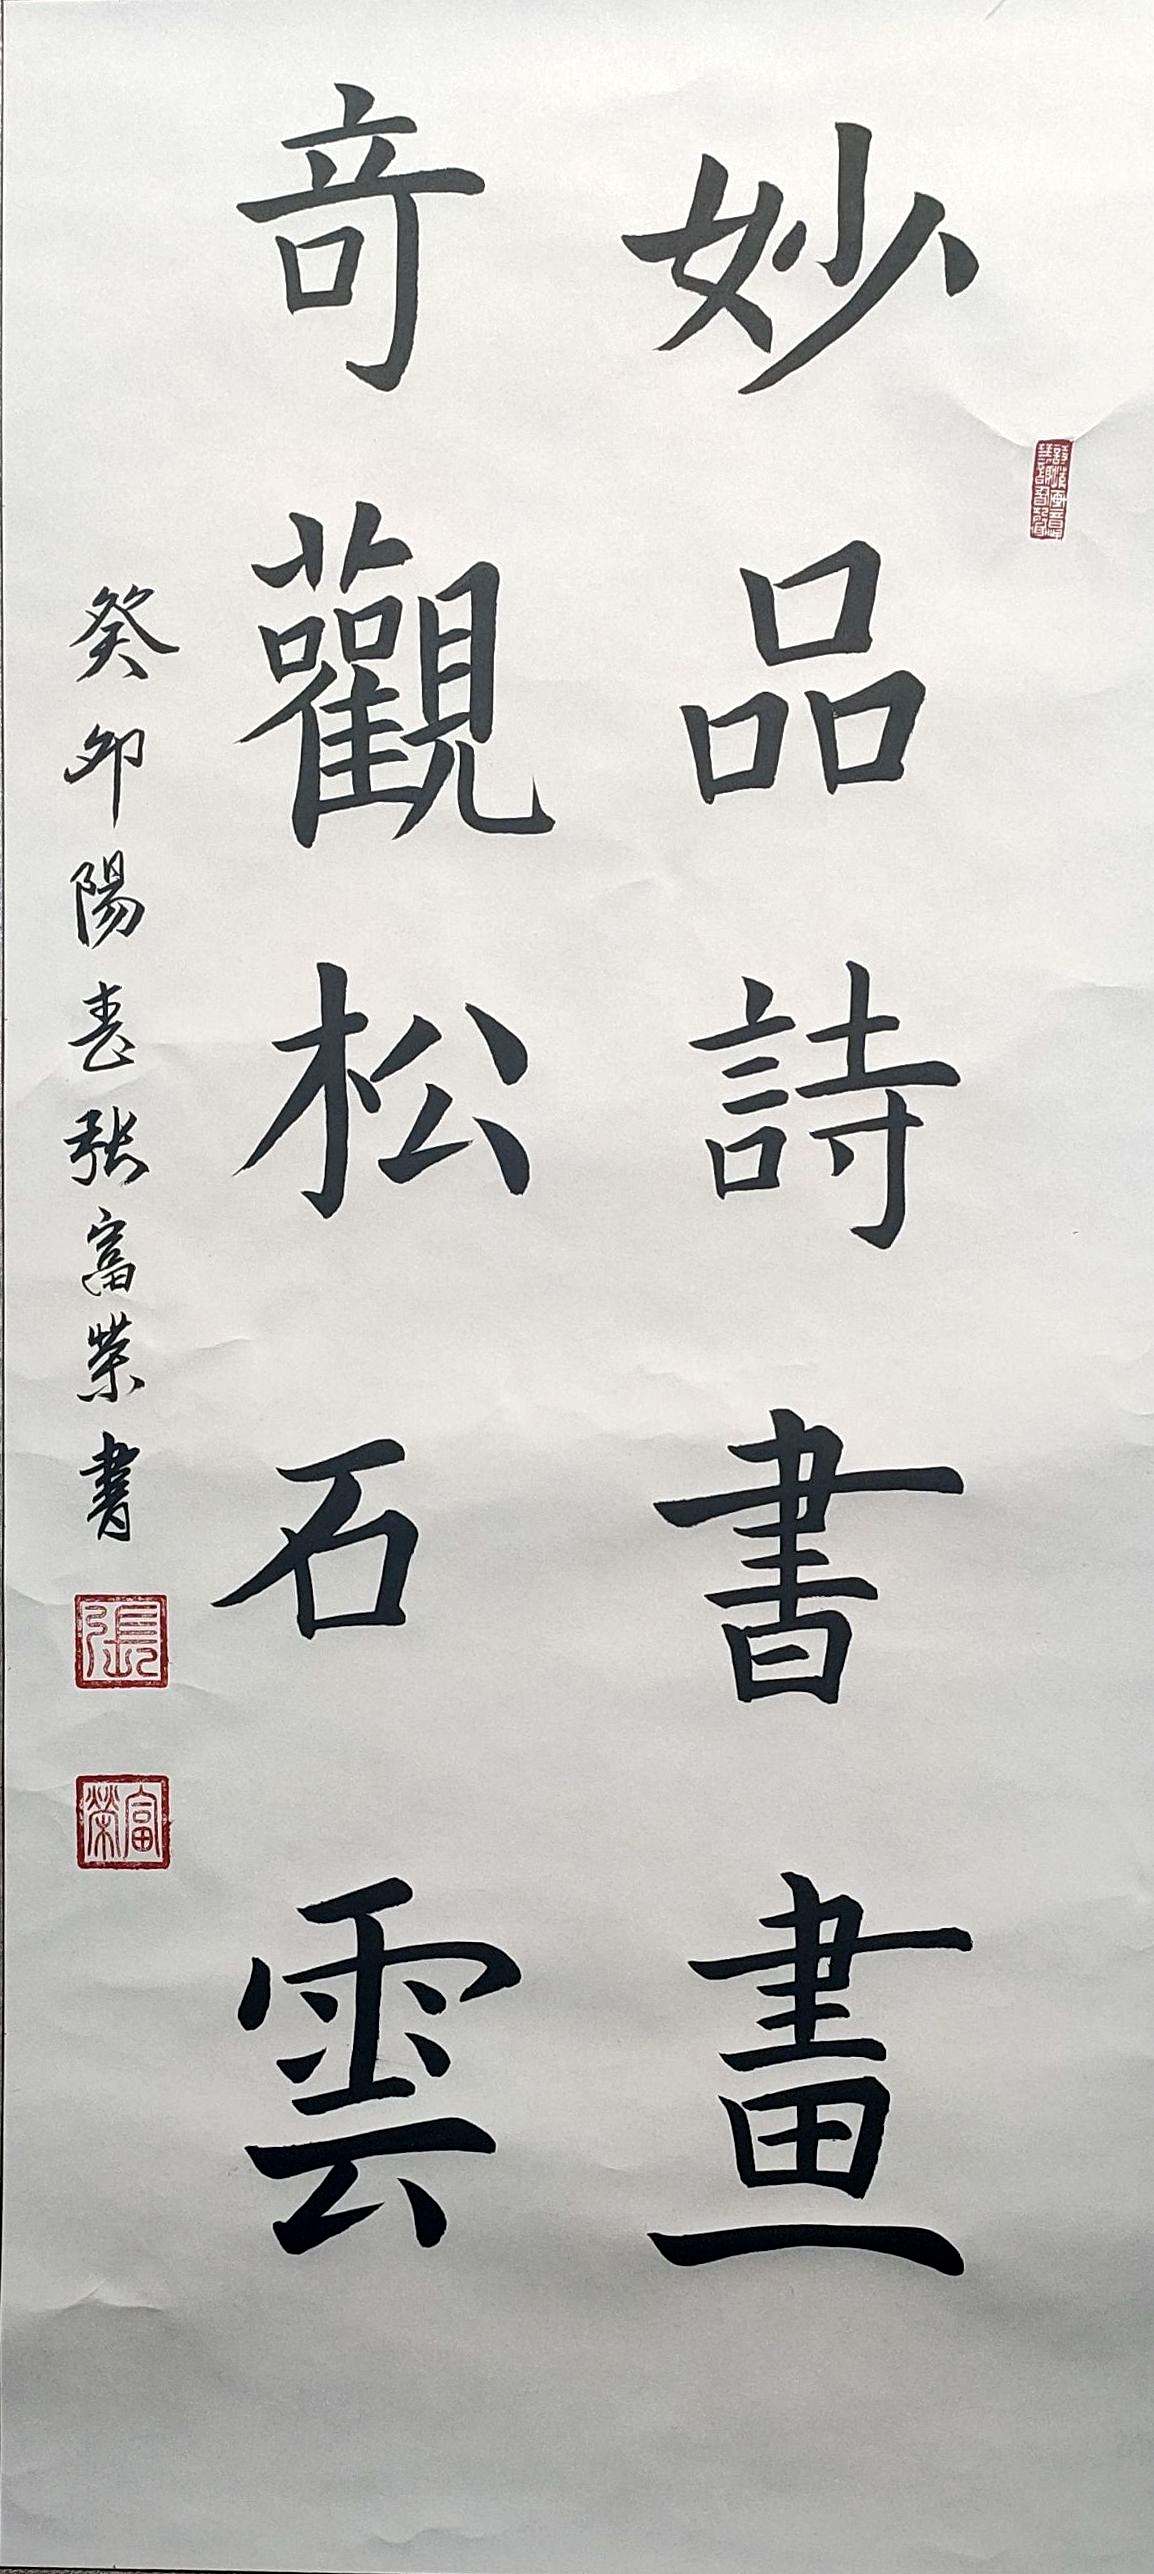 妙品詩書畫
竒觀松石雲
癸卯陽春張富榮書
張
富榮